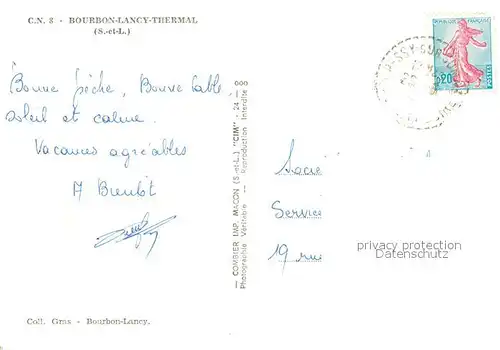 C.N. 8 - BOURBON-LANCY-THERMAL
(S.-et-L.)
Bonne pêche, Bonne table,
soleil et calme.
Vacances agréables
A Bientôt
— COMBIER IMP. MACON (S.-et-L.) "CIM" - 24 — 000
Photographie Véritable — Reproduction Interdite
0,20
Socié
Service
19 rue
privacy protection
AKpool.de
Coll. Gras - Bourbon-Lancy.